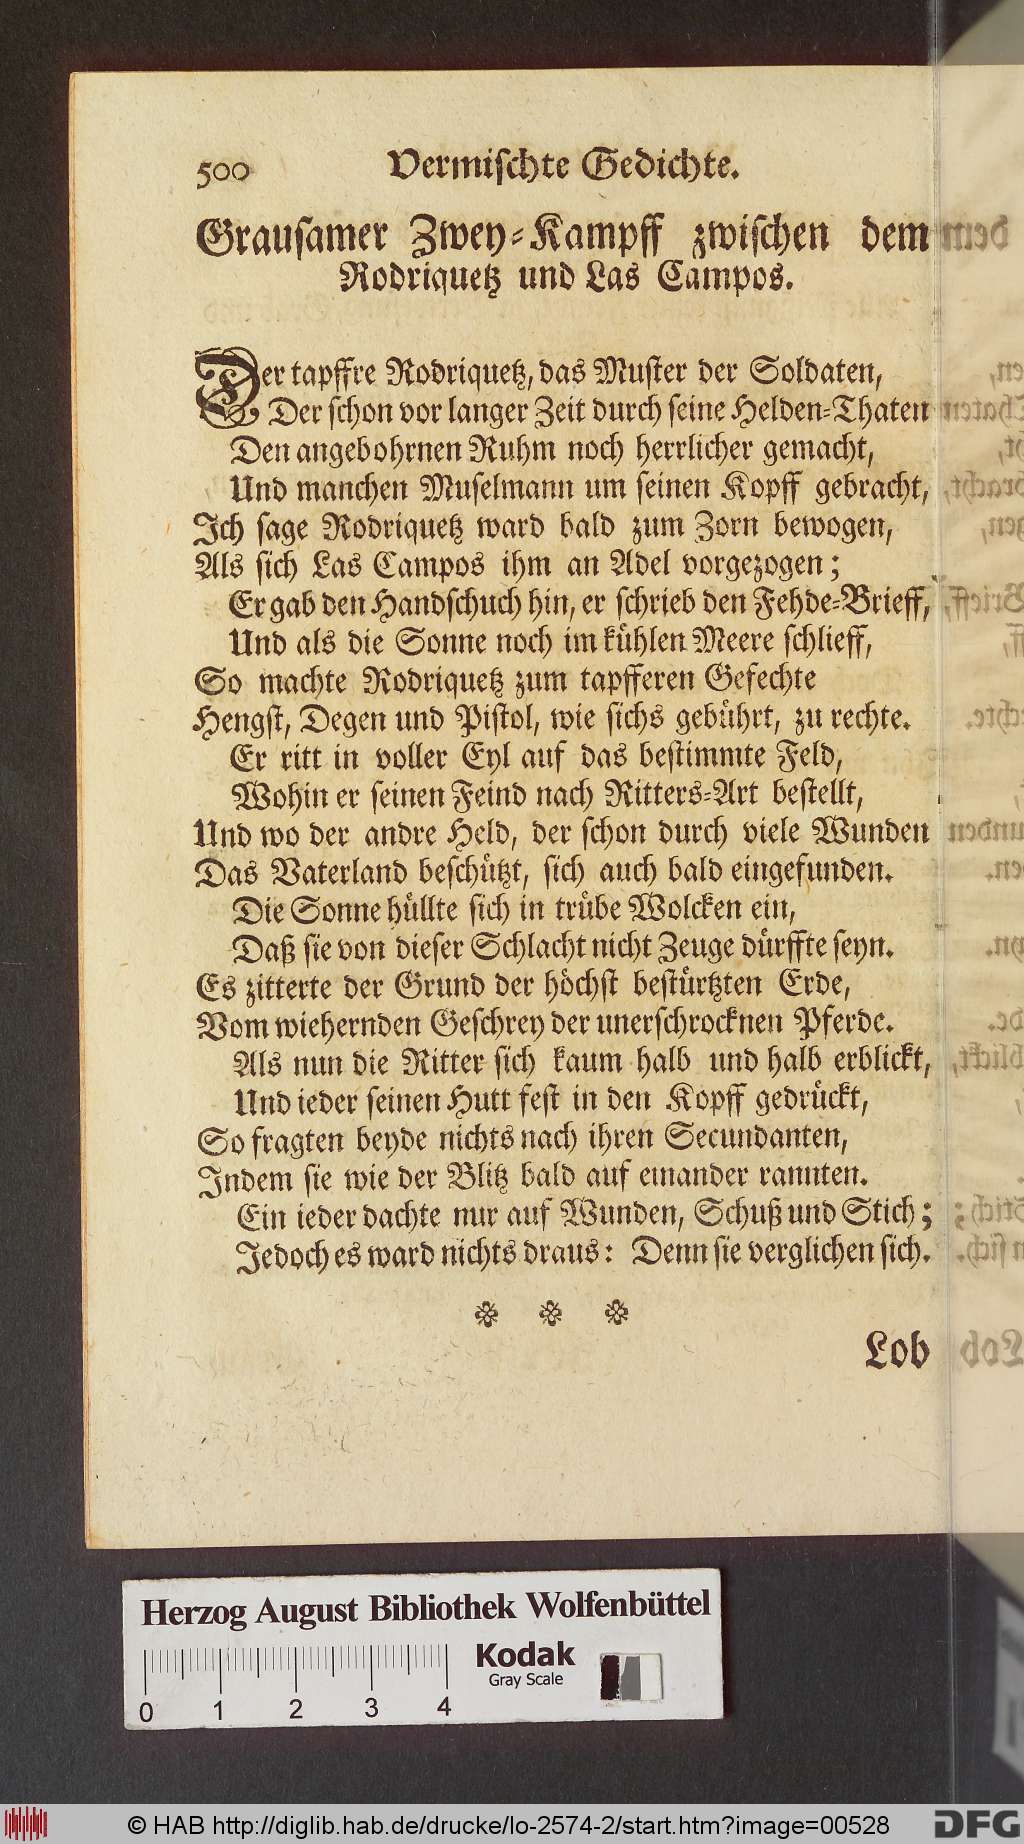 500 Vermischte Gedichte.
Grausamer Zwey-Kampff zwischen dem
Rodriquetz und Las Campos.
Der tapffre Rodriquetz, das Muster der Soldaten,
Der schon vor langer Zeit durch seine Helden-Thaten
Den angebohrnen Ruhm noch herrlicher gemacht,
Und manchen Muselmann um seinen Kopff gebracht,
Ich sage Rodriquetz ward bald zum Zorn bewogen,
Als sich Las Campos ihm an Adel vorgezogen;
Er gab den Handschuch hin, er schrieb den Fehde-Brieff,
Und als die Sonne noch im kühlen Meere schlieff,
So machte Rodriquetz zum tapfferen Gefechte
Hengst, Degen und Pistol, wie sichs gebührt, zu rechte.
Er ritt in voller Eyl auf das bestimmte Feld,
Wohin er seinen Feind nach Ritters-Art bestellt,
Und wo der andre Held, der schon durch viele Wunden
Das Vaterland beschützt, sich auch bald eingefunden.
Die Sonne hüllte sich in trübe Wolcken ein,
Daß sie von dieser Schlacht nicht Zeuge dürffte seyn.
Es zitterte der Grund der höchst bestürtzten Erde,
Vom wiehernden Geschrey der unerschrocknen Pferde.
Als nun die Ritter sich kaum halb und halb erblickt,
Und ieder seinen Hutt fest in den Kopff gedrückt,
So fragten beyde nichts nach ihren Secundanten,
Indem sie wie der Blitz bald auf einander rannten.
Ein ieder dachte nur auf Wunden, Schuß und Stich;
Jedoch es ward nichts draus: Denn sie verglichen sich.
* * *
Lob
Herzog August Bibliothek Wolfenbüttel
Kodak
Gray Scale
0 1 2 3 4
© HAB http://diglib.hab.de/drucke/lo-2574-2/start.htm?image=00528
DFG